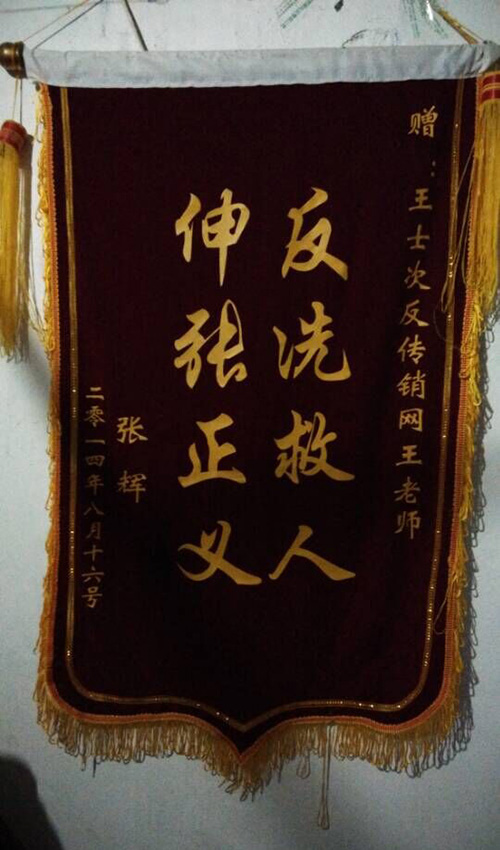 赠：王士次反传销网王老师
反洗救人
伸张正义
张辉
二零一四年八月十六号